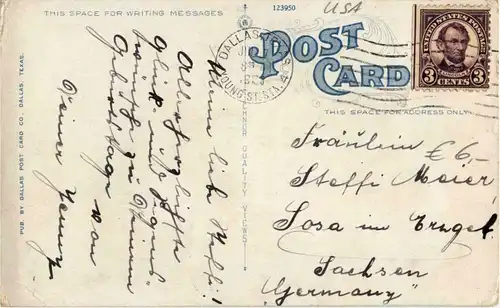 THIS SPACE FOR WRITING MESSAGES
123950
USA
DALLAS
YOUNG ST. STA.
POST CARD
UNITED STATES POSTAGE
LINCOLN
3 CENTS 3
THIS SPACE FOR ADDRESS ONLY
PUB. BY DALLAS POST CARD CO., DALLAS, TEXAS.
QUALITY VIEWS
Meine liebe Steffi!
Allerherzlichste
Glück und Segens
wünsche zu Deinem
Geburtstage
von
Deiner Jenny
Fräulein
€ 6,-
Steffi Meier
Sosa im Erzgeb.
Sachsen
"Germany"